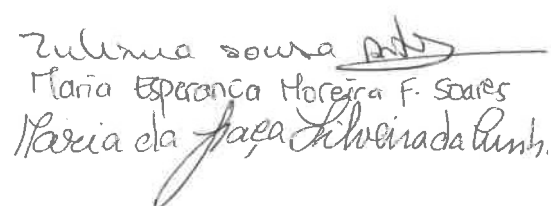 Zulmira Sousa
Maria Esperança Moreira F. Soares
Maria da Graça Silveira da Cunh.